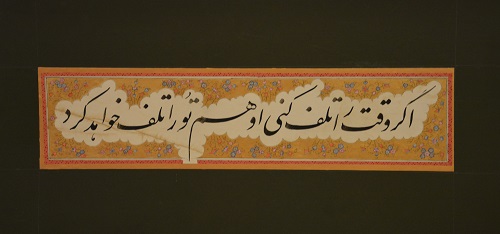 اگر وقت را تلف کنی او هم تُو را تلف خواهد کرد